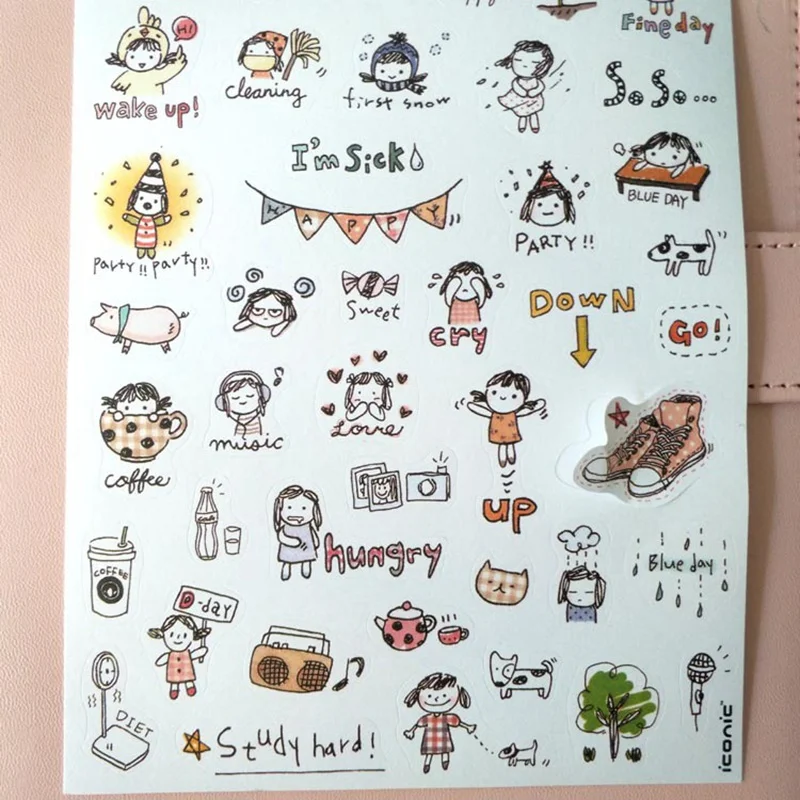 Fine day
Hi!
wake up!
cleaning
first snow
So. So. ...
I'm Sick
HAPPY
BLUE DAY
PARTY!!
Party!! party!!
Sweet
cry
DOWN
GO!
coffee
music
Love
up
hungry
Blue day
COFFEE
D-day
DIET
Study hard!
iconic